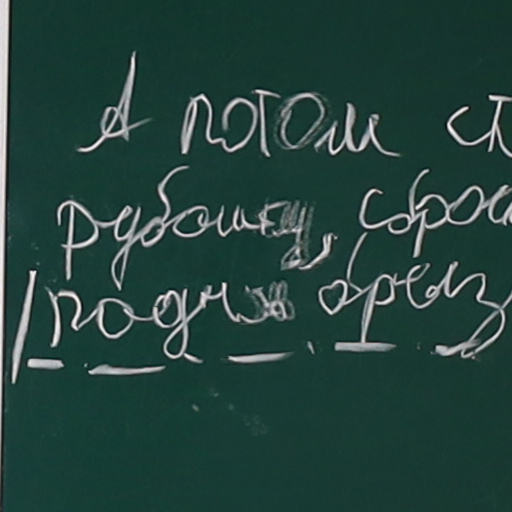 А потом ст
рубашку, сброс
подняв